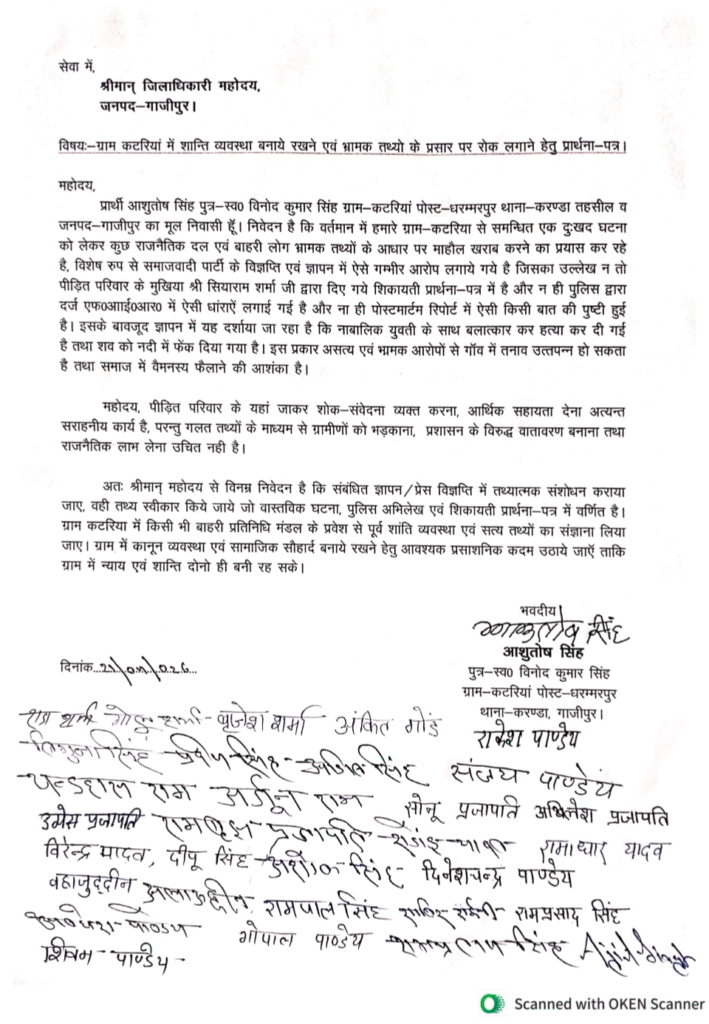 सेवा में,
श्रीमान् जिलाधिकारी महोदय,
जनपद–गाजीपुर।
विषयः–ग्राम कटरियां में शान्ति व्यवस्था बनाये रखने एवं भ्रामक तथ्यो के प्रसार पर रोक लगाने हेतु प्रार्थना–पत्र।
महोदय,
प्रार्थी आशुतोष सिंह पुत्र–स्व0 विनोद कुमार सिंह ग्राम–कटरियां पोस्ट–धरम्मरपुर थाना–करण्डा तहसील व
जनपद–गाजीपुर का मूल निवासी हूँ। निवेदन है कि वर्तमान में हमारे ग्राम–कटरिया से समन्धित एक दुःखद घटना
को लेकर कुछ राजनैतिक दल एवं बाहरी लोग भ्रामक तथ्यों के आधार पर माहौल खराब करने का प्रयास कर रहे
है, विशेष रुप से समाजवादी पार्टी के विज्ञप्ति एवं ज्ञापन में ऐसे गम्भीर आरोप लगाये गये है जिसका उल्लेख न तो
पीड़ित परिवार के मुखिया श्री सियाराम शर्मा जी द्वारा दिए गये शिकायती प्रार्थना–पत्र में है और न ही पुलिस द्वारा
दर्ज एफ0आाई0आर0 में ऐसी धांराऐं लगाई गई है और ना ही पोस्टमार्टम रिपोर्ट में ऐसी किसी बात की पुष्टी हुई
है। इसके बावजूद ज्ञापन में यह दर्शाया जा रहा है कि नाबालिक युवती के साथ बलात्कार कर हत्या कर दी गई
है तथा शव को नदी में फेंक दिया गया है। इस प्रकार असत्य एवं भ्रामक आरोपों से गॉव में तनाव उत्तपन्न हो सकता
है तथा समाज में वैमनस्य फैलाने की आशंका है।
महोदय, पीड़ित परिवार के यहां जाकर शोक–संवेदना व्यक्त करना, आर्थिक सहायता देना अत्यन्त
सराहनीय कार्य है, परन्तु गलत तथ्यों के माध्यम से ग्रामीणों को भड़काना, प्रशासन के विरुद्ध वातावरण बनाना तथा
राजनैतिक लाभ लेना उचित नही है।
अतः श्रीमान् महोदय से विनम्र निवेदन है कि संबंधित ज्ञापन/प्रेस विज्ञप्ति में तथ्यात्मक संशोधन कराया
जाए, वही तथ्य स्वीकार किये जाये जो वास्तविक घटना, पुलिस अभिलेख एवं शिकायती प्रार्थना–पत्र में वर्णित है।
ग्राम कटरिया में किसी भी बाहरी प्रतिनिधि मंडल के प्रवेश से पूर्व शांति व्यवस्था एवं सत्य तथ्यों का संज्ञाना लिया
जाए। ग्राम में कानून व्यवस्था एवं सामाजिक सौहार्द बनाये रखने हेतु आवश्यक प्रसाशनिक कदम उठाये जाऐं ताकि
ग्राम में न्याय एवं शान्ति दोनो ही बनी रह सके।
भवदीय
आशुतोष सिंह
आशुतोष सिंह
दिनांक
पुत्र–स्व0 विनोद कुमार सिंह
ग्राम–कटरियां पोस्ट–धरम्मरपुर
थाना–करण्डा, गाजीपुर।
शर्मा गोलू शर्मा– बृजेश शर्मा अंकित गोंड
राकेश पाण्डेय
सिंह– सिंह– सिंह संजय पाण्डेय
राम अर्जुन राम सोनू प्रजापति अखिलेश प्रजापति
उमेस प्रजापति प्रजापति यादव
विरेन्द्र यादव, दीपू सिंह– सिंह दिनेशचन्द्र पाण्डेय
अलाउद्दीन रामपाल सिंह रामप्रसाद सिंह
गोपाल पाण्डेय सिंह
शिवम– पाण्डेय–
Scanned with OKEN Scanner